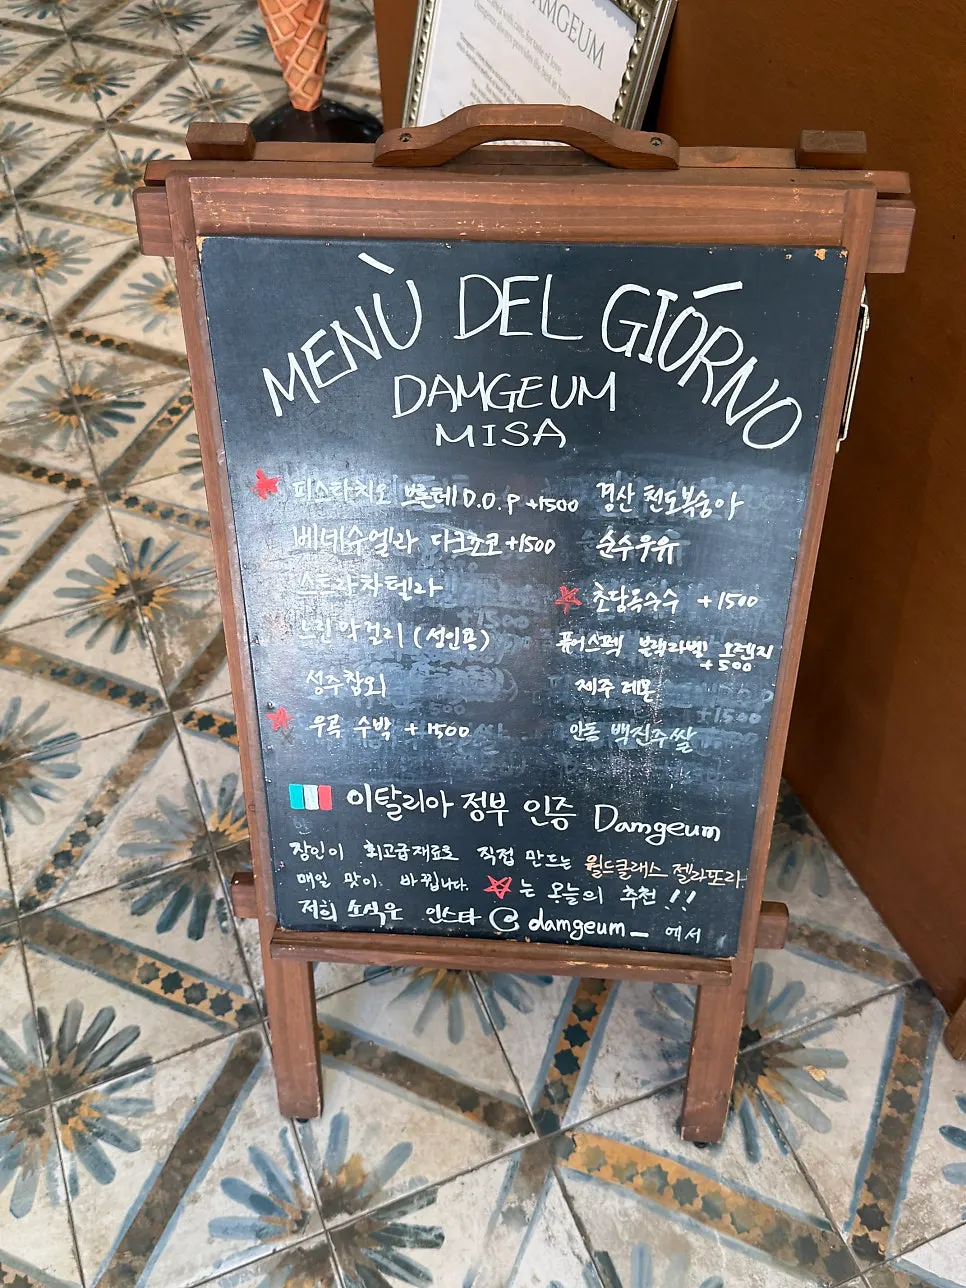 DAMGEUM
MENÙ DEL GIÓRNO
DAMGEUM
MISA
피스타치오 브론테 D.O.P +1500
베네수엘라 다크쵸코 +1500
스트라차텔라
느린 막걸리 (성인용)
성주참외
우곡 수박 +1500
경산 천도복숭아
순수우유
초당옥수수 +1500
퓨어스펙 블랙라벨 오렌지
+500
제주 레몬
안동 백진주쌀
이탈리아 정부 인증 Damgeum
장인이 최고급재료로 직접 만드는 월드클래스 젤라또라
매일 맛이 바뀝니다. ☆는 오늘의 추천 !!
저희 소식은 인스타 @damgeum_ 에서